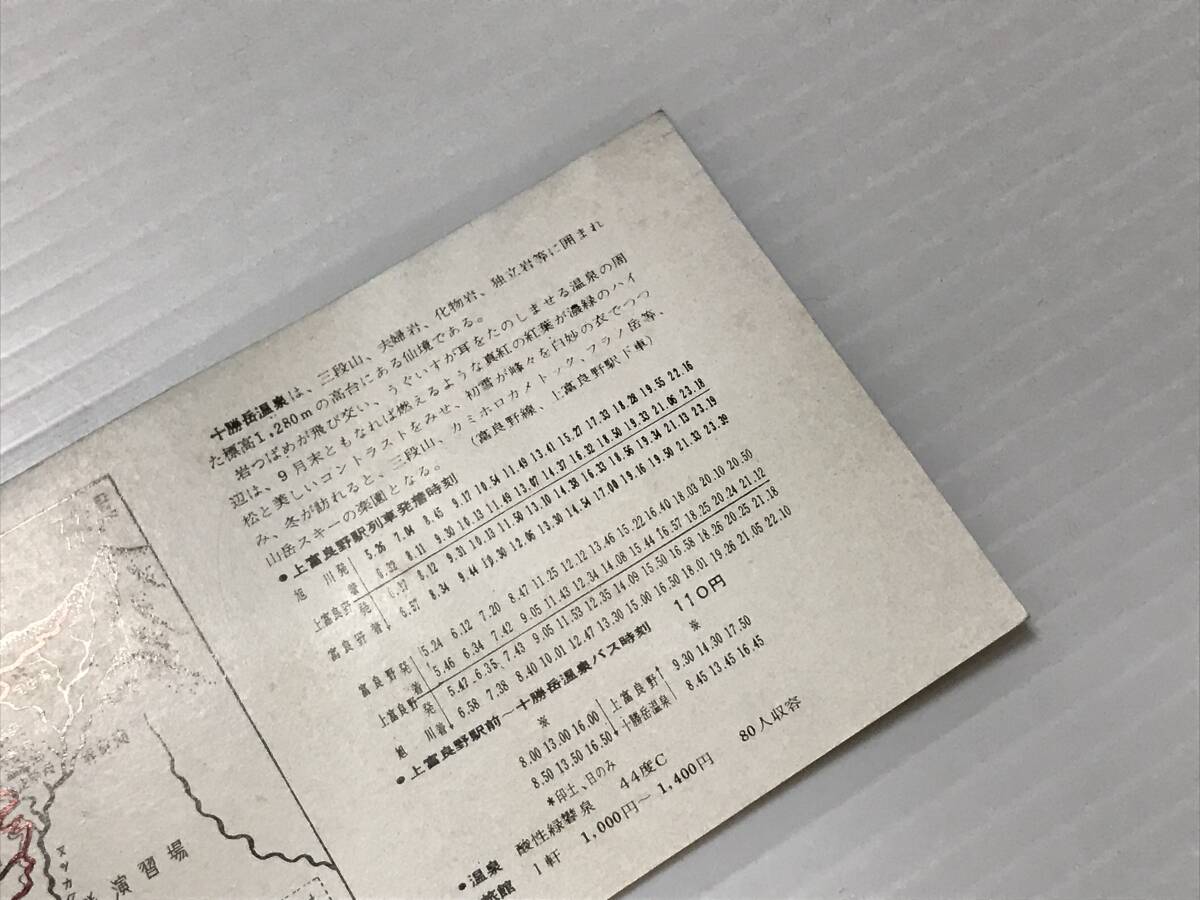 十勝岳温泉は、三段山、夫婦岩、化物岩、独立岩等に囲まれ
た標高1,280mの高台にある仙境である。
岩つばめが飛び交い、うぐいすが耳をたのしませる温泉の周
辺は、9月末ともなれば燃えるような真紅の紅葉が濃緑のハイ
松と美しいコントラストをみせ、初雪が峰々を白妙の衣でつつ
み、冬が訪れると、三段山、カミホロカメトック、フラノ岳等、
山岳スキーの楽園となる。 (富良野線、上富良野駅下車)
●上富良野駅列車発着時刻
旭川発 5.26 7.04 8.45 9.17 10.54 11.49 13.41 15.27 17.33 18.28 19.55 22.16
上富良野 着 6.32 8.11 9.30 10.13 11.49 13.07 14.37 16.32 18.50 19.33 21.06 23.18
発 6.37 8.12 9.31 10.13 11.50 13.10 14.38 16.33 18.56 19.34 21.13 23.19
富良野着 6.57 8.34 9.44 10.30 12.06 13.30 14.54 17.00 19.16 19.50 21.33 23.39
富良野発 5.24 6.12 7.20 8.47 11.25 12.12 13.46 15.22 16.40 18.03 20.10 20.50
上富良野 着 5.46 6.34 7.42 9.05 11.43 12.34 14.08 15.44 16.57 18.25 20.24 21.12
発 5.47 6.35 7.43 9.05 11.53 12.35 14.09 15.50 16.58 18.26 20.25 21.18
旭川着 6.58 7.38 8.40 10.01 12.47 13.30 15.00 16.50 18.01 19.26 21.05 22.10
●上富良野駅前―十勝岳温泉バス時刻 110円
※ ※
8.00 13.00 16.00 上富良野 9.30 14.30 17.50
8.50 13.50 16.50 十勝岳温泉 8.45 13.45 16.45
*印土、日のみ
●温泉 酸性緑礬泉 44度C
旅館 1軒 1,000円～1,400円 80人収容
演習場